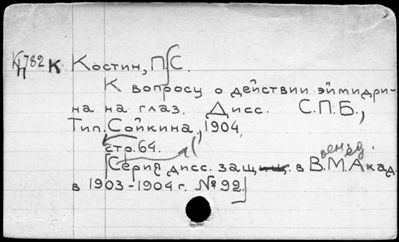 КП782 К Костин, П.С.
К вопросу о действии эймидри-
на на глаз. Дисс. С.П.Б.,
Тип. Сойкина, 1904,
стр. 64.
(Серия дисс. защ. в В.М.Акад.
в 1903-1904 г. №92)